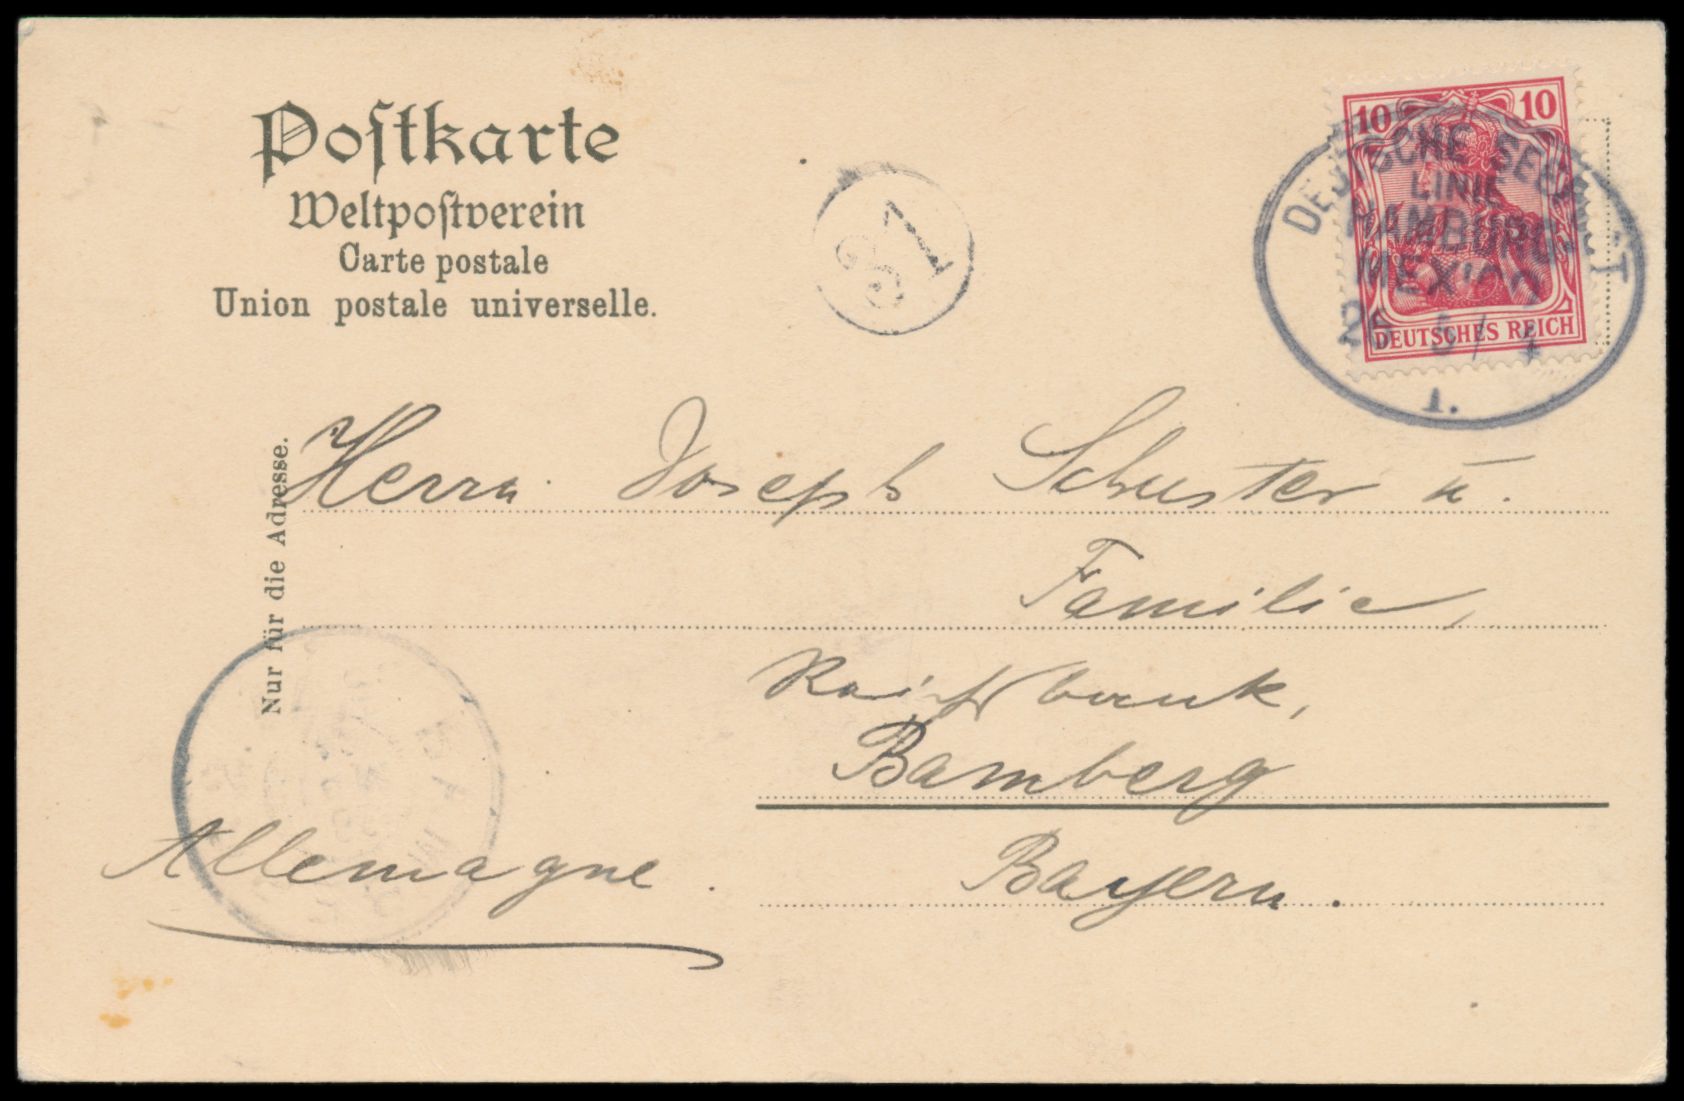 Postkarte
Weltpostverein
Carte postale
Union postale universelle.
31
10 10
DEUTSCHE SEEPOST
LINIE
HAMBURG
MEXICO
26
DEUTSCHES REICH
I.
Nur für die Adresse.
Herrn Joseph Schuster u.
Familie,
Bamberg
Bayern.
Allemagne.